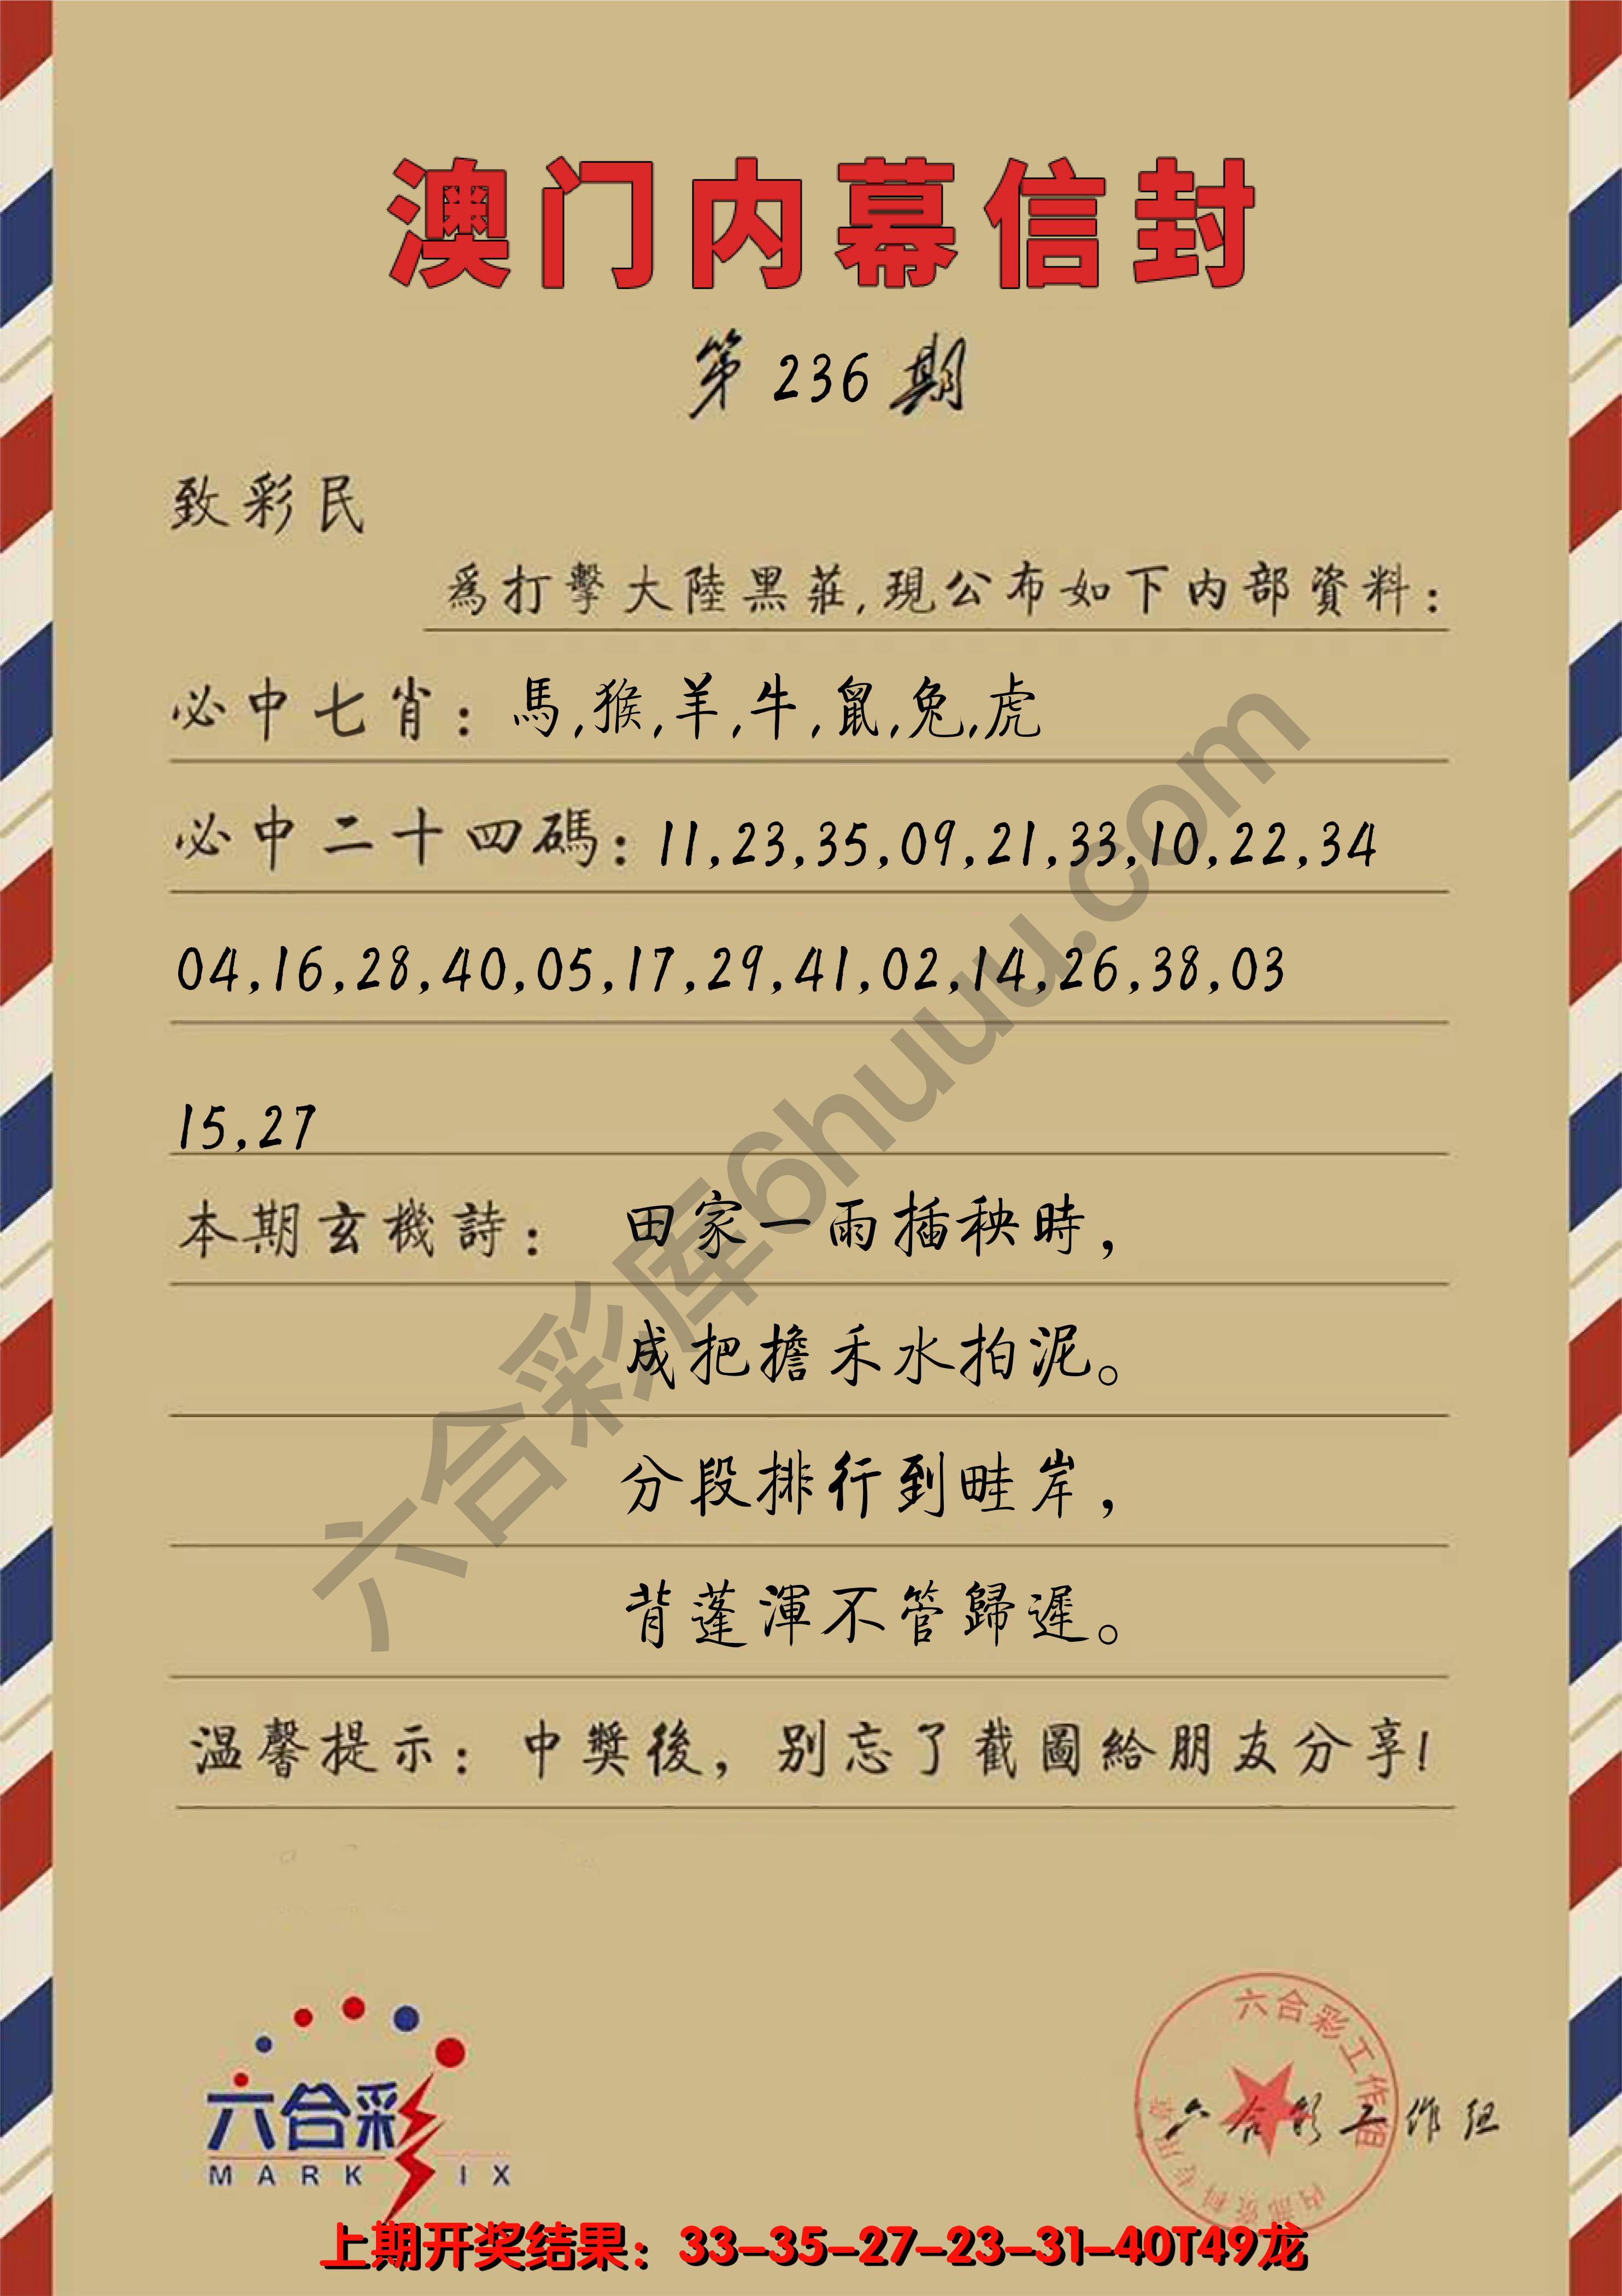 澳门内幕信封
第 236 期
致彩民
爲打擊大陸黑莊,現公布如下内部資料:
必中七肖: 馬,猴,羊,牛,鼠,兔,虎
必中二十四碼: 11,23,35,09,21,33,10,22,34
04,16,28,40,05,17,29,41,02,14,26,38,03
15,27
本期玄機詩: 田家一雨插秧時,
成把擔禾水拍泥。
分段排行到畦岸,
背蓬渾不管歸遲。
温馨提示: 中獎後, 别忘了截圖給朋友分享!
六合彩库6huuu.com
六合彩
MARK IX
六合彩工作组
内部资料专用章
六合彩工作组
上期开奖结果: 33-35-27-23-31-40T49龙